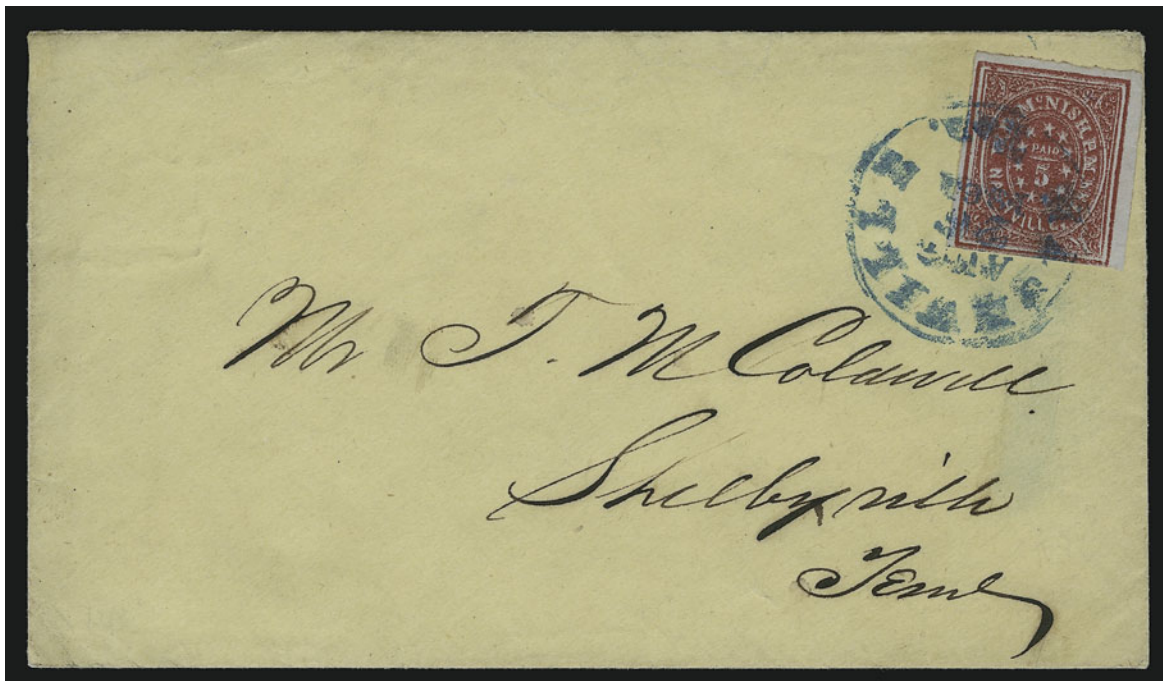 W.D. McNISH. P.M.
PAID
5
NASHVILLE
NASHVILLE
AUG
1861
Mr T. M Coldwell.
Shelbyville
Tenn